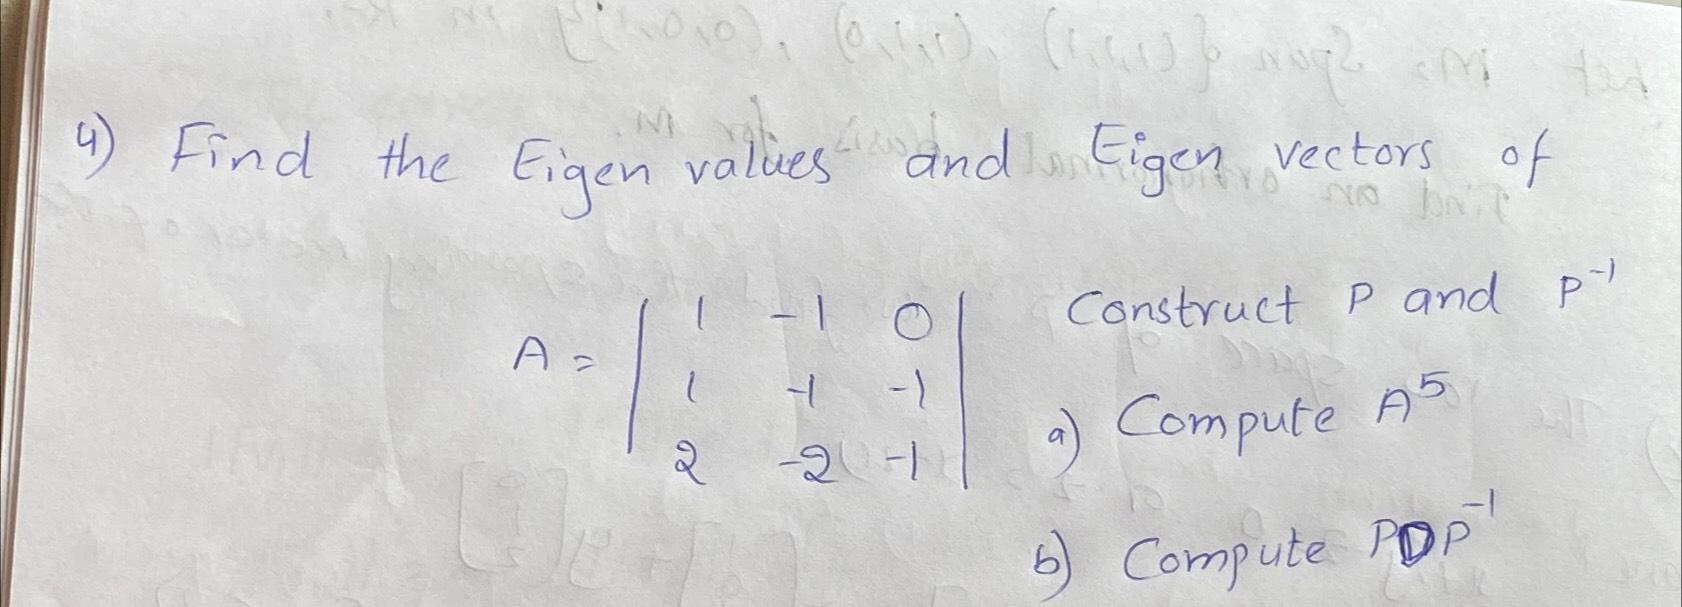 4) Find the Eigen values and Eigen vectors of
A = | 1 -1 0 | Construct P and P⁻¹
| 1 -1 -1 |
| 2 -2 -1 | a) Compute A⁵
b) Compute PDP⁻¹